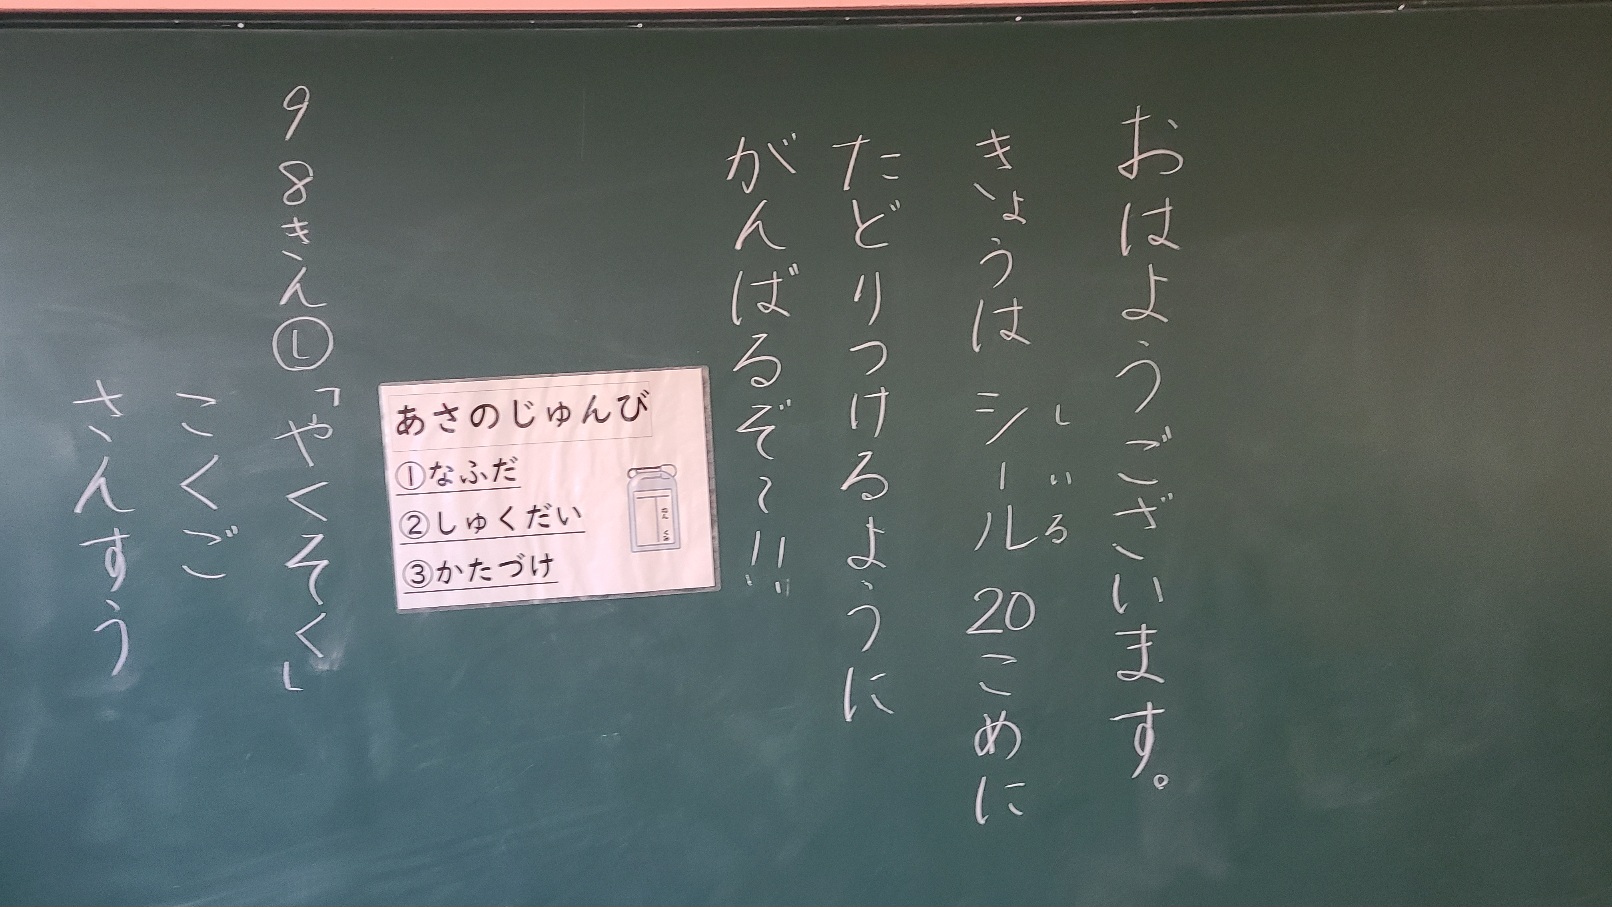 おはようございます。
きょうは シール 20こめに
しいる
たどりつけるように
がんばるぞ~!!
あさのじゅんび
①なふだ
②しゅくだい
③かたづけ
98きん㋛「やくそく」
こくご
さんすう